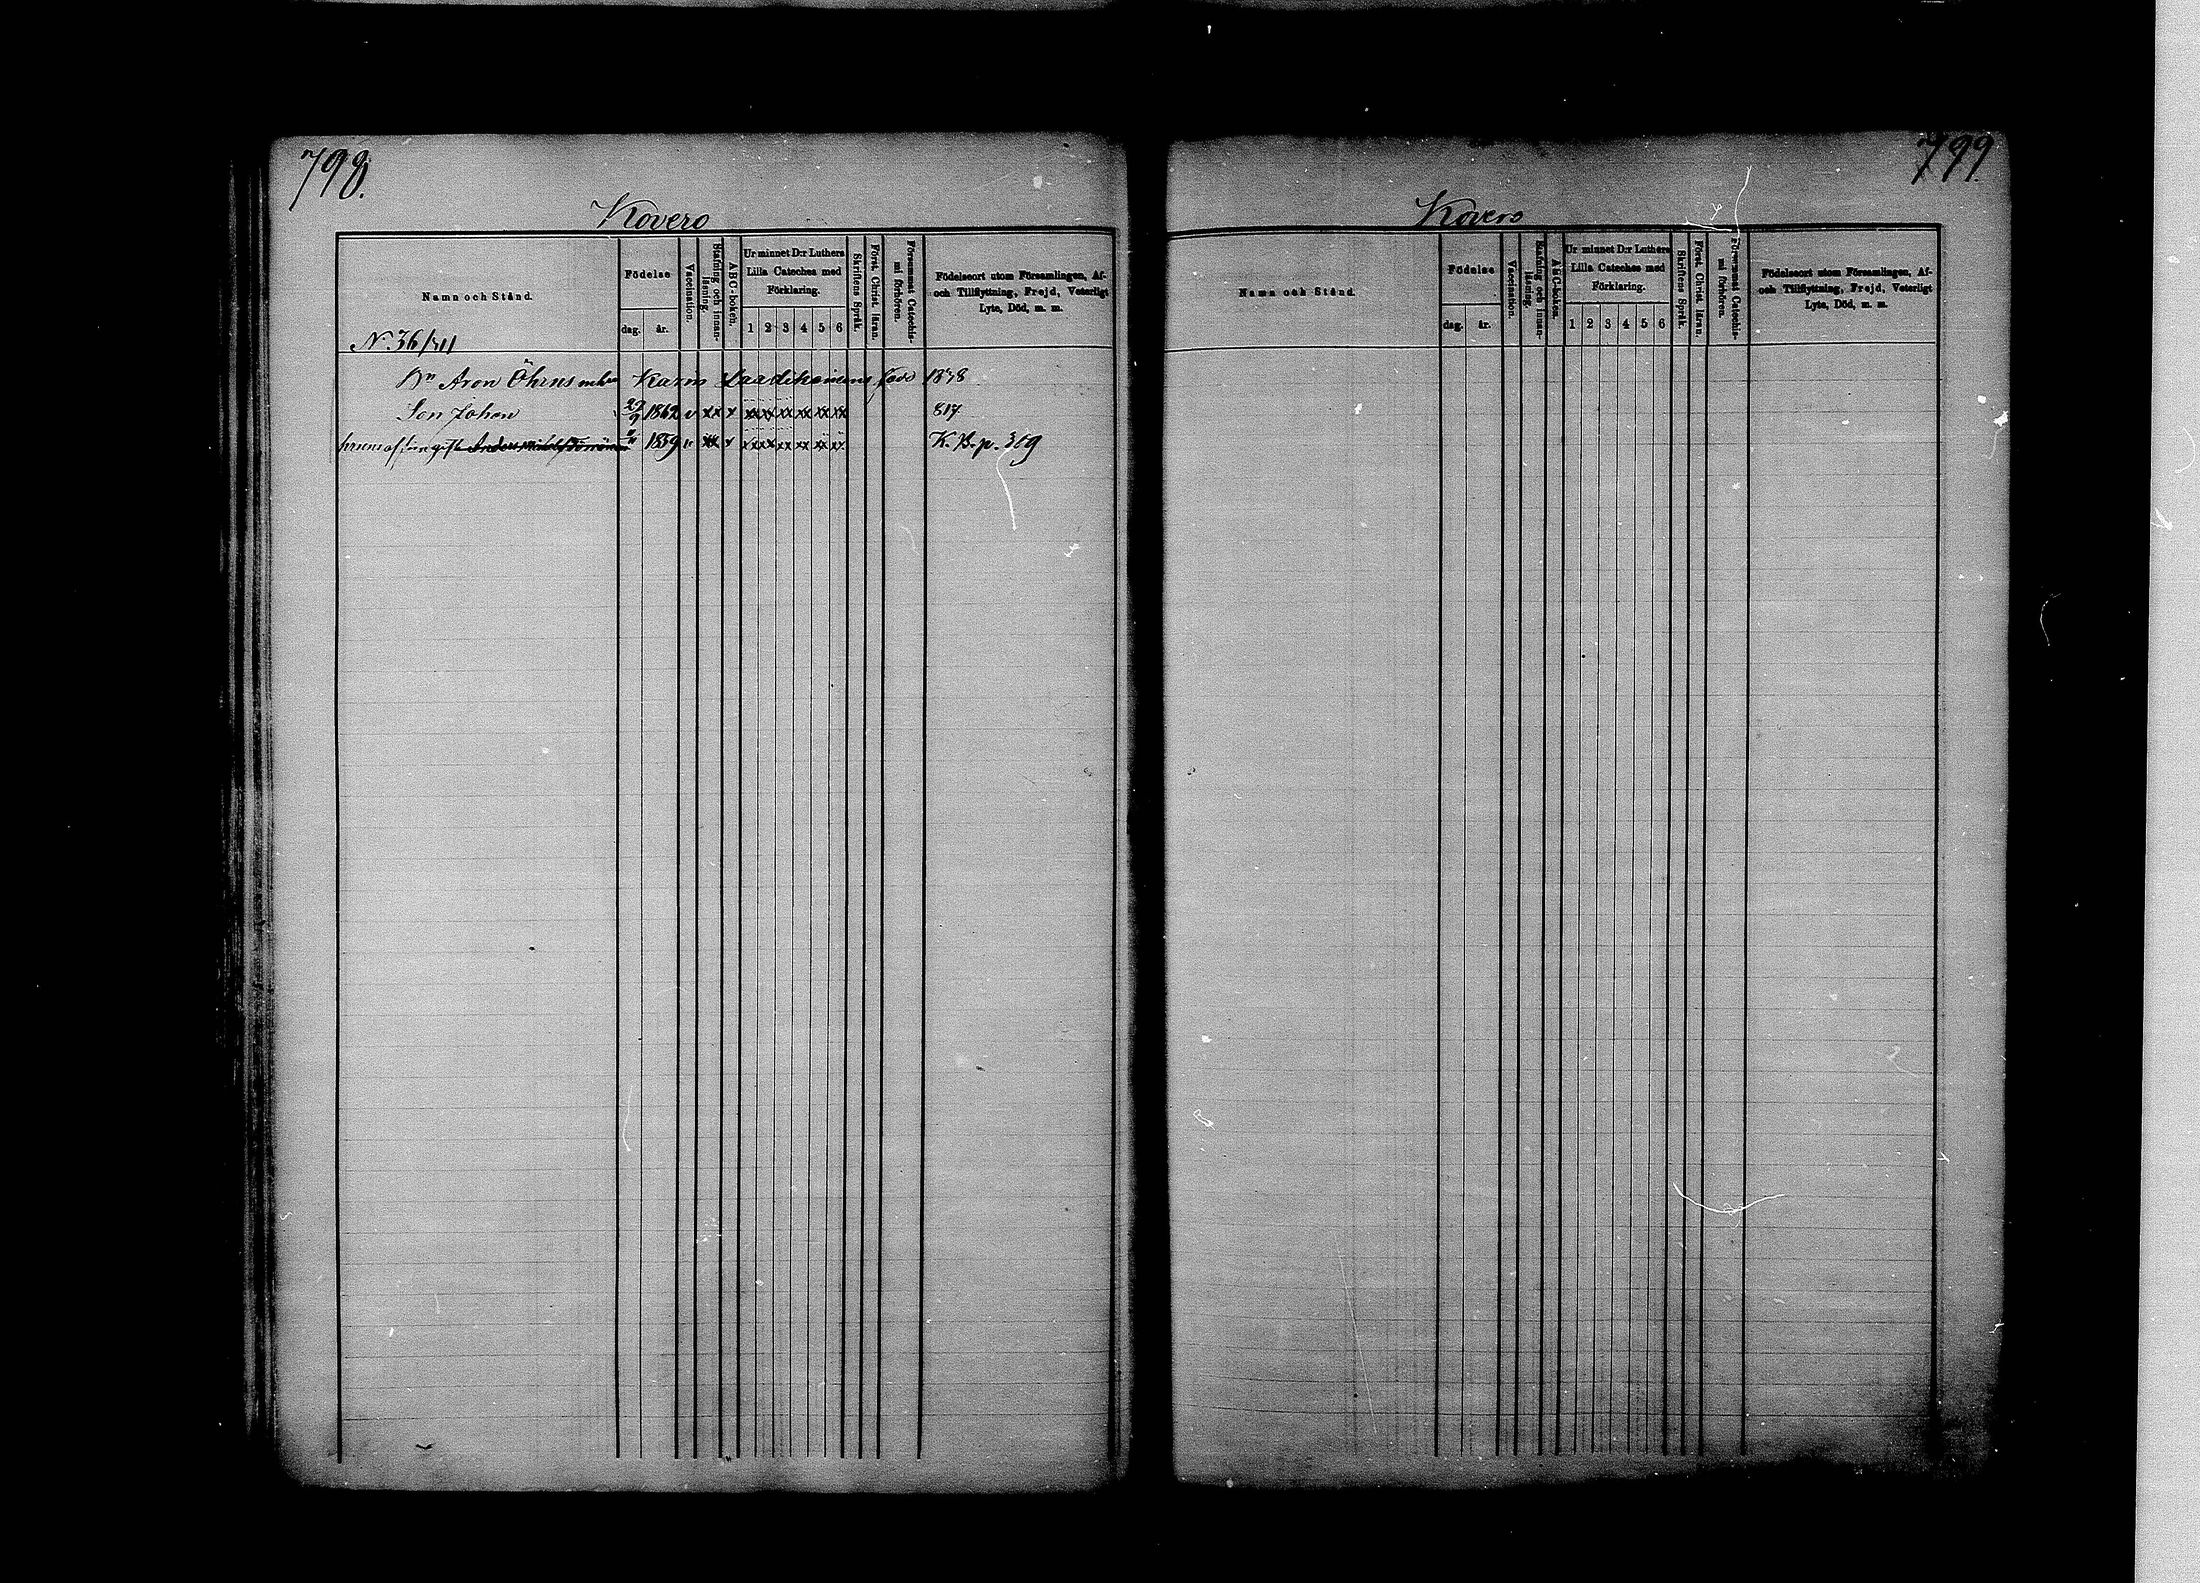 798.
Kovero
Namn och Stånd.
Födelse
dag.
år.
Vaccination.
Stafning och innan-
läsning.
ABC-boken.
Ur minnet D:r Luthers
Lilla Cateches med
Förklaring.
1 2 3 4 5 6
Skriftens Språk.
Först. Christ. läran.
Försummat Catechis-
mi förhören.
Födelseort utom Församlingen, Af-
och Tillflyttning, Frejd, Veterligt
Lyte, Död, m. m.
N. 36/711
Bn Aron Öhrns Karin 1878
Son Johan 29/9 1862 v xx x xx xx xx xx xx xx 817
" 1859 v xx x xx xx xx xx xx xx K. B. p. 319
799.
Kovero
Namn och Stånd.
Födelse
dag.
år.
Vaccination.
Stafning och innan-
läsning.
ABC-boken.
Ur minnet D:r Luthers
Lilla Cateches med
Förklaring.
1 2 3 4 5 6
Skriftens Språk.
Först. Christ. läran.
Försummat Catechis-
mi förhören.
Födelseort utom Församlingen, Af-
och Tillflyttning, Frejd, Veterligt
Lyte, Död, m. m.